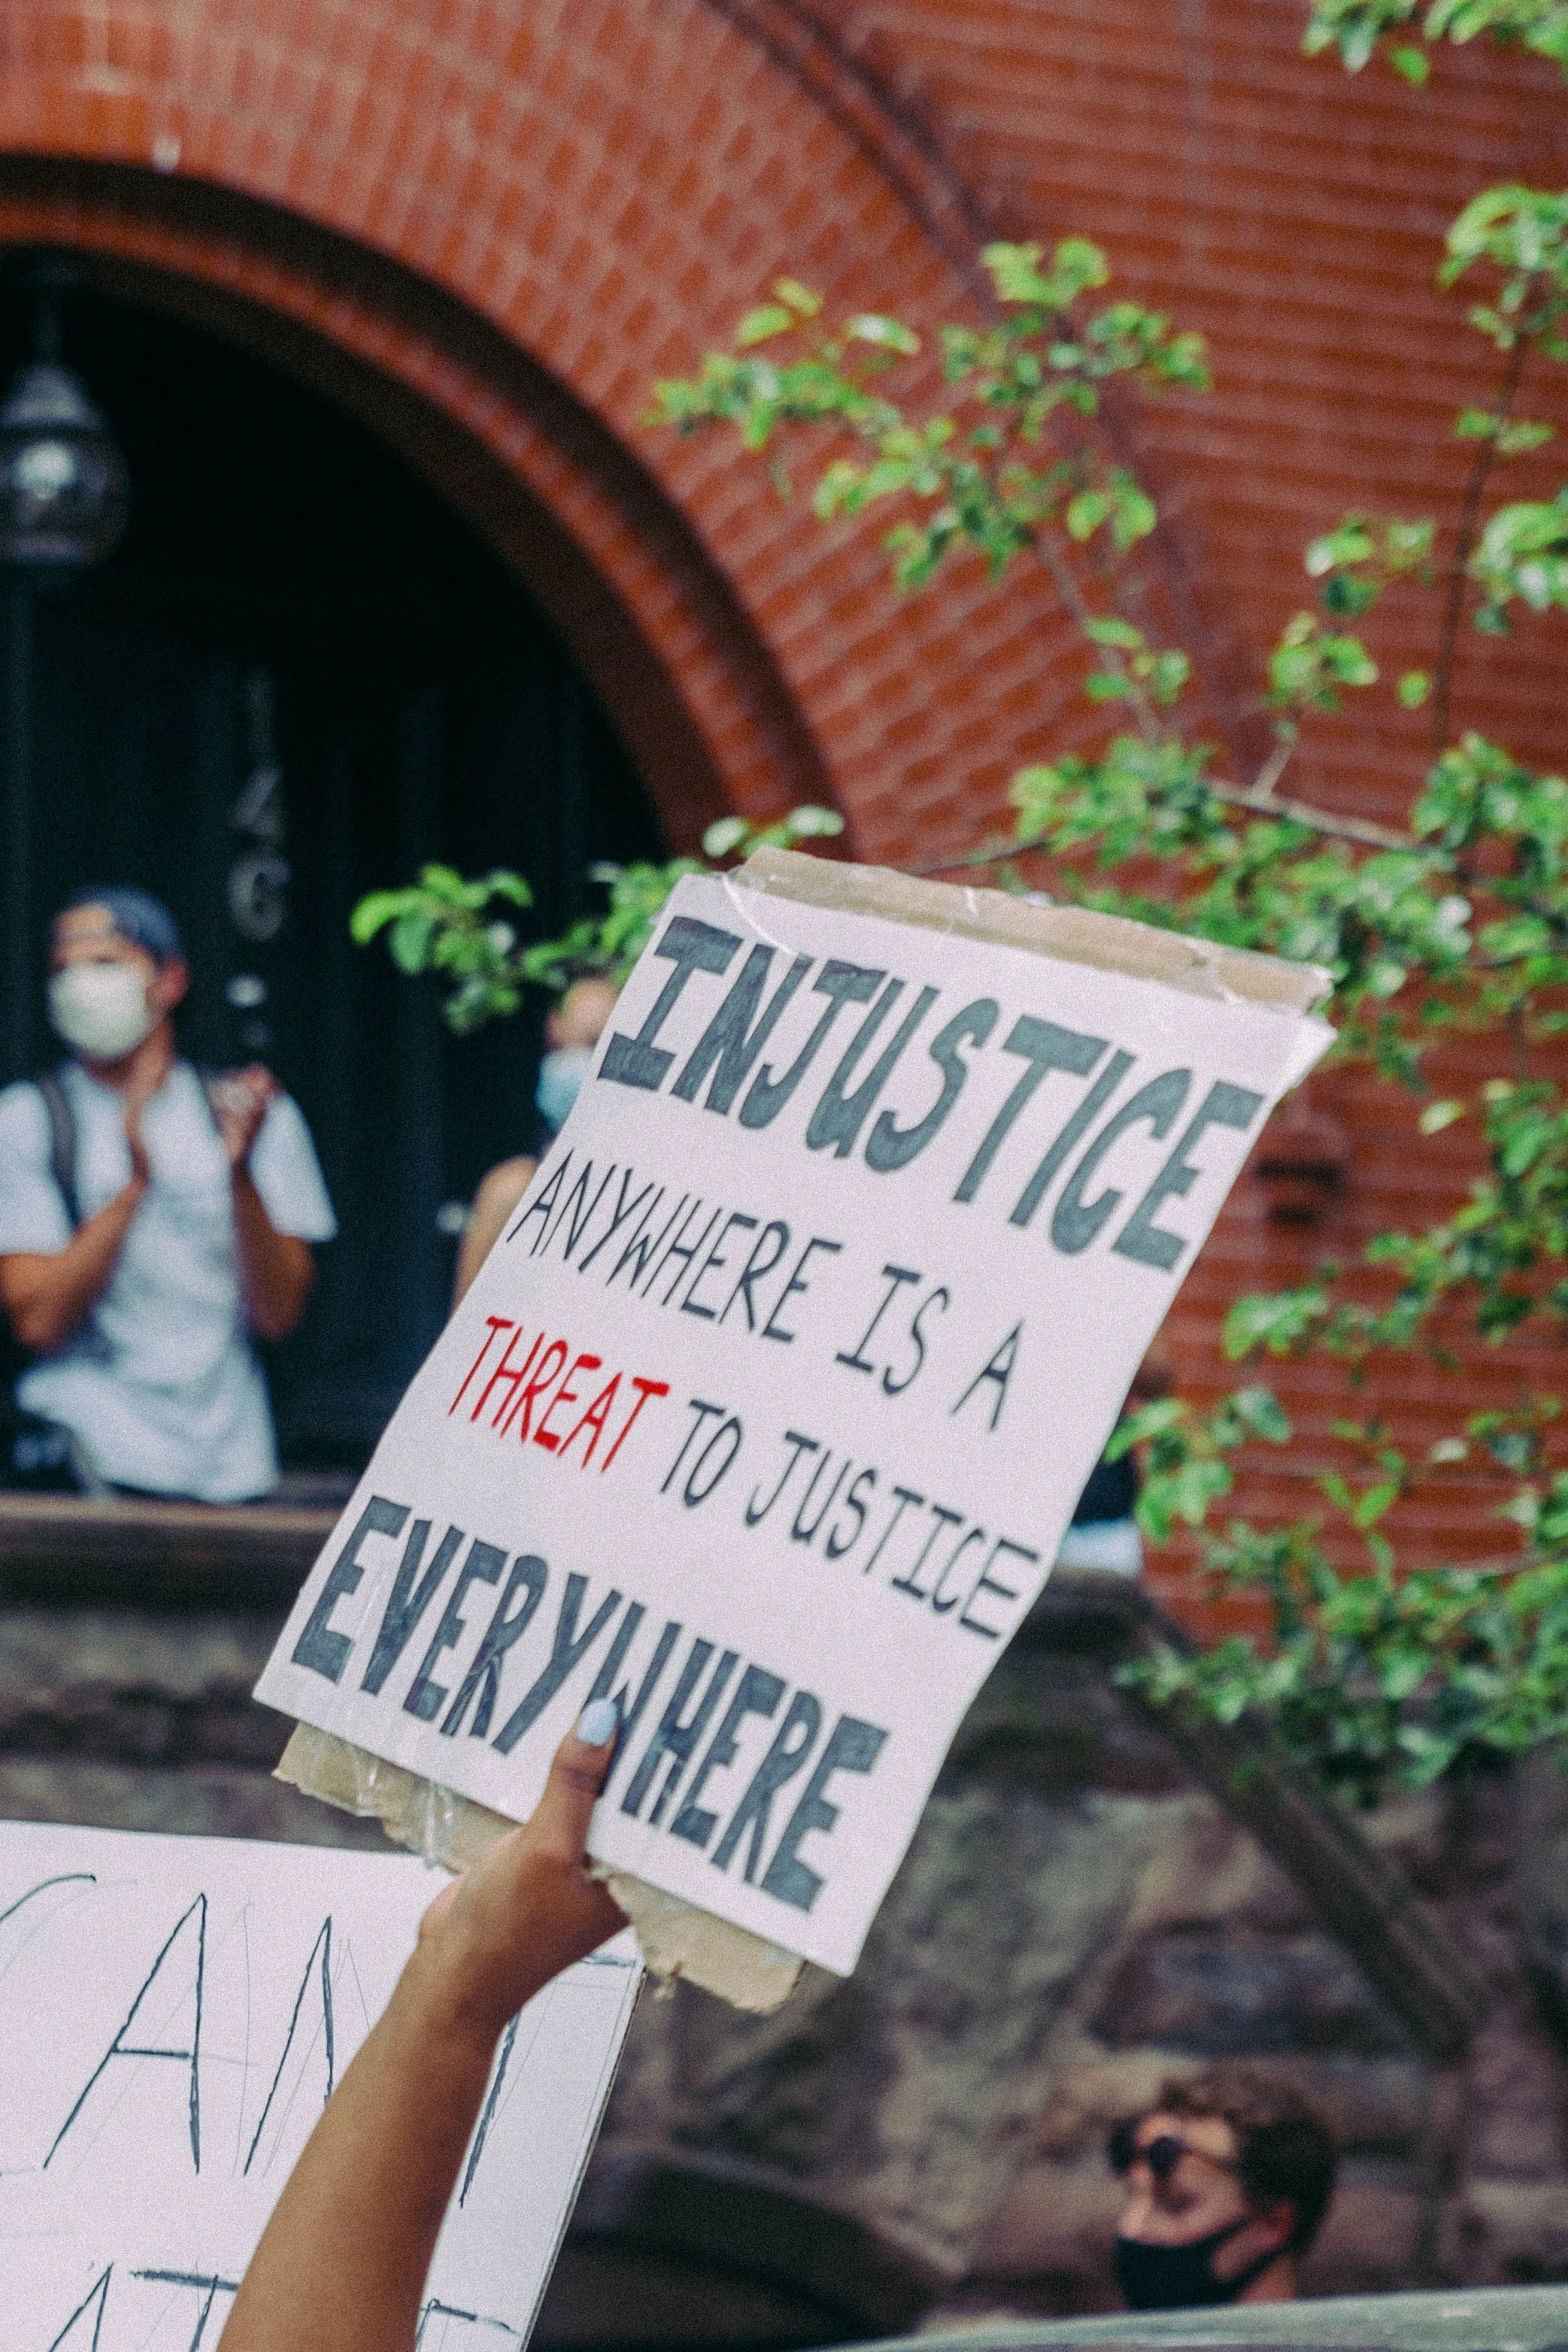 INJUSTICE
ANYWHERE IS A
THREAT TO JUSTICE
EVERYWHERE